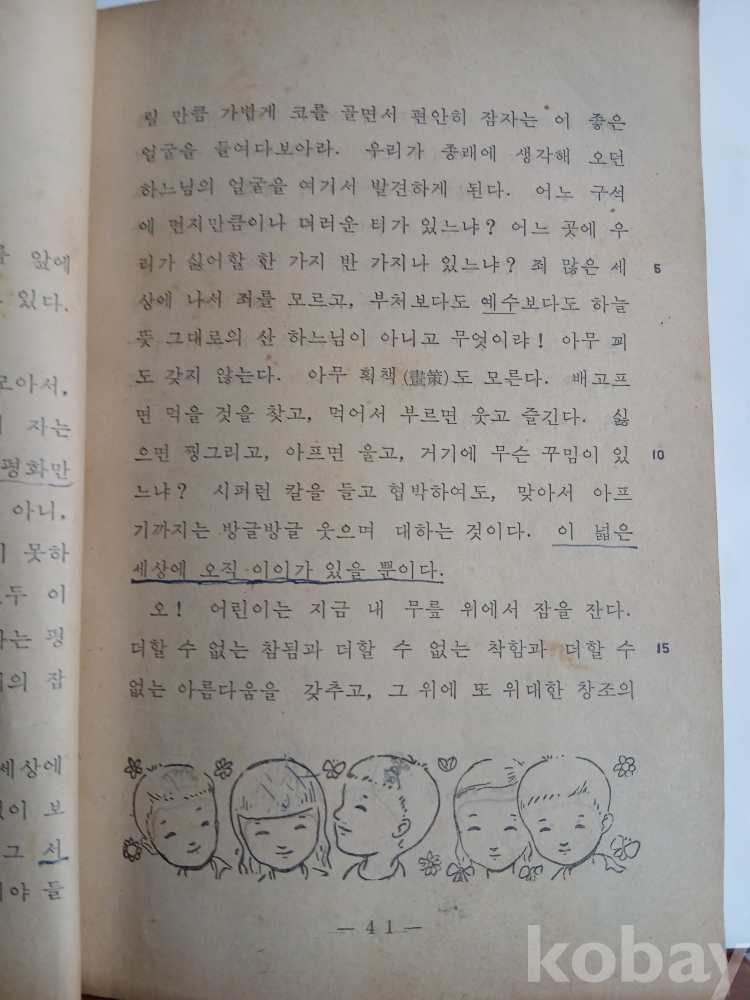 를 앞에
있다.
모아서,
자는
평화만
아니,
못하
모두 이
평
의 잠
세상에
없이 보
그 서
야 들
릴 만큼 가볍게 코를 골면서 편안히 잠자는 이 좋은
얼굴을 들여다보아라. 우리가 종래에 생각해 오던
하느님의 얼굴을 여기서 발견하게 된다. 어느 구석
에 먼지만큼이나 더러운 티가 있느냐? 어느 곳에 우
리가 싫어할 한 가지 반 가지나 있느냐? 죄 많은 세 5
상에 나서 죄를 모르고, 부처보다도 예수보다도 하늘
뜻 그대로의 산 하느님이 아니고 무엇이랴! 아무 꾀
도 갖지 않는다. 아무 획책(畫策)도 모른다. 배고프
면 먹을 것을 찾고, 먹어서 부르면 웃고 즐긴다. 싫
으면 찡그리고, 아프면 울고, 거기에 무슨 꾸밈이 있 10
느냐? 시퍼런 칼을 들고 협박하여도, 맞아서 아프
기까지는 방글방글 웃으며 대하는 것이다. 이 넓은
세상에 오직 이이가 있을 뿐이다.
오! 어린이는 지금 내 무릎 위에서 잠을 잔다.
더할 수 없는 참됨과 더할 수 없는 착함과 더할 수 15
없는 아름다움을 갖추고, 그 위에 또 위대한 창조의
— 41 —
kobay